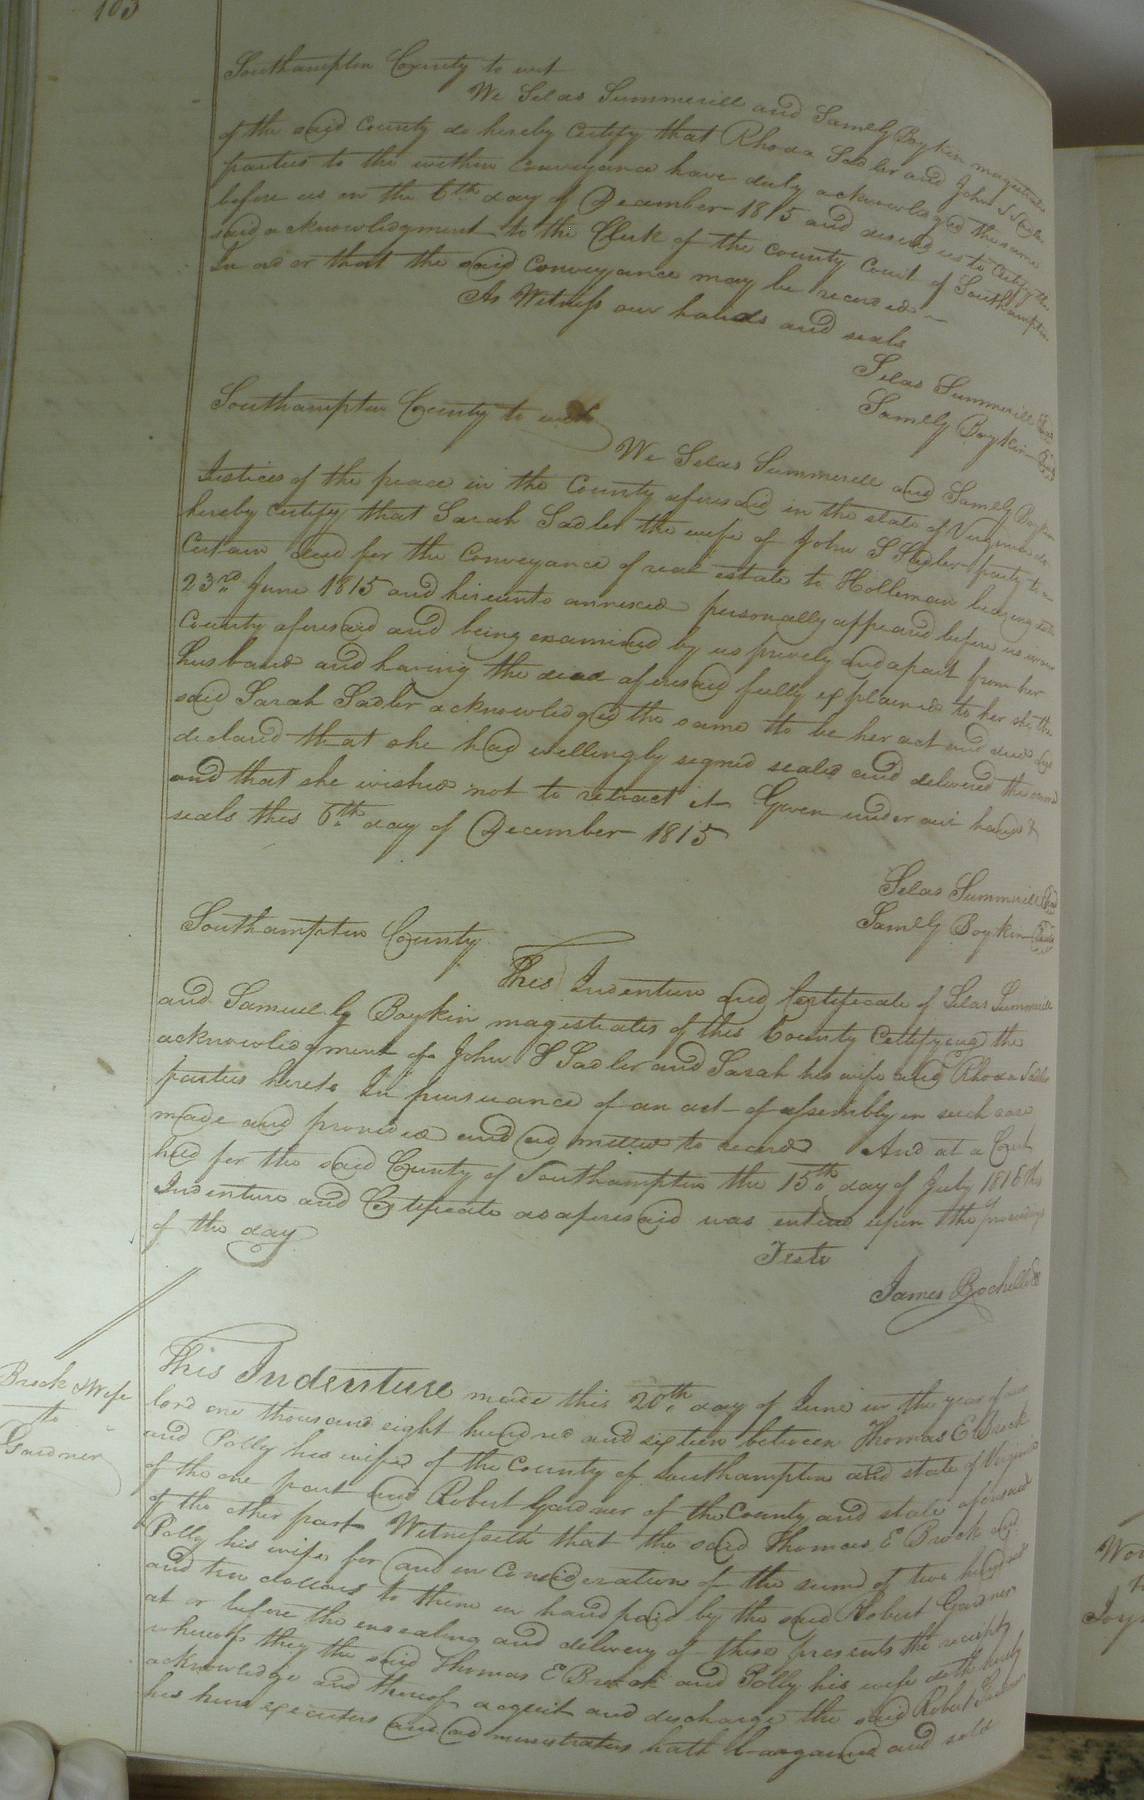 103
Southampton County to wit
We Silas Summerill and Samlg Boykin magistrates
of the said County do hereby Certify that Rhoda Sadler and John S Sadler
parties to the within Conveyance have duly acknowledged the same
before us on the 6th day of December 1815 and desired us to Certify the
said acknowledgment to the Clerk of the County Court of Southampton
In order that the said Conveyance may be recorded
As Witness our hands and seals
Silas Summerill Seal
Samlg Boykin Seal
Southampton County to wit
We Silas Summerill and Samlg Boykin
Justices of the peace in the County aforesaid in the state of Virginia do
hereby Certify that Sarah Sadler the wife of John S Sadler party to a
Certain deed for the Conveyance of real estate to Holleman bearing date
23rd June 1815 and hereunto annexed personally appeared before us in our
County aforesaid and being examined by us privily and apart from her
husband and having the deed aforesaid fully explained to her she the
said Sarah Sadler acknowledged the same to be her act and deed and
declared that she had willingly signed sealed and delivered the same
and that she wished not to retract it Given under our hands &
seals this 6th day of December 1815
Silas Summerill Seal
Samlg Boykin Seal
Southampton County
This Indenture and Certificate of Silas Summerill
and Samuel lg Boykin magistrates of this County Certifying the
acknowledgment of John S Sadler and Sarah his wife and Rhoda Sadler
parties hereto In pursuance of an act of assembly in such case
made and provided and admitted to record And at a Court
held for the said County of Southampton the 15th day of July 1816 this
Indenture and Certificate as aforesaid was entered upon the proceedings
of the day
Teste
James Rochelle
Brock & Wife
to
Gardner
This Indenture made this 20th day of June in the year of our
lord one thousand eight hundred and sixteen between Thomas E Brock
and Polly his wife of the County of Southampton and state of Virginia
of the one part and Robert Gardner of the County and state aforesaid
of the other part Witnesseth that the said Thomas E Brock and
Polly his wife for and in Consideration of the sum of two hundred
and two dollars to them in hand paid by the said Robert Gardner
at or before the ensealing and delivery of these presents the receipt
whereof they the said Thomas E Brock and Polly his wife doth hereby
acknowledge and thereof acquit and discharge the said Robert Gardner
his heirs executors and administrators hath bargained and sold